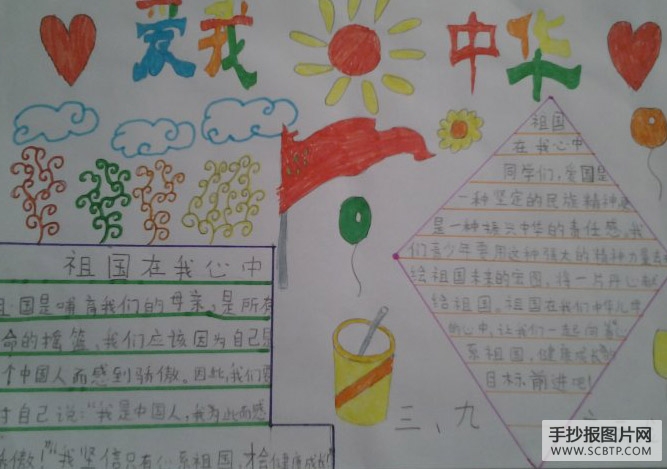 爱我中华
祖国
在我心中
同学们,爱国是
一种坚定的民族精神
是一种振兴中华的责任感,我
们青少年要用这种强大的精神力量去
绘祖国未来的宏图。将一片丹心
给祖国。祖国在我们中华儿
的心中,让我们一起向着心
系祖国,健康成长的
目标前进吧!
祖国在我心中
国是哺育我们的母亲,是所有
命的摇篮,我们应该因为自己是
个中国人而感到骄傲。因此,我们要
对自己说:“我是中国人,我为此而感
傲!”我坚信只有心系祖国,才会健康成长
三、九
手抄报图片网
WWW.SCBTP.COM